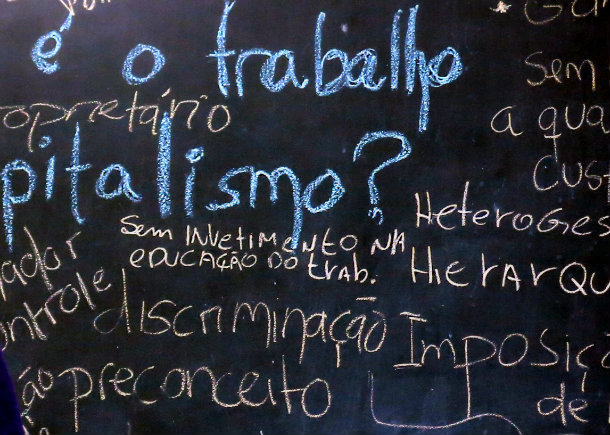 é o trabalho
Sem
oprietário
a qua
pitalismo?
Cust
Heteroges
Sem INVETIMENTO NA
EDUCAÇÃO DO trab.
HIErARQU
ador
ontrole
discriminação
Imposiçã
ão preconceito
de